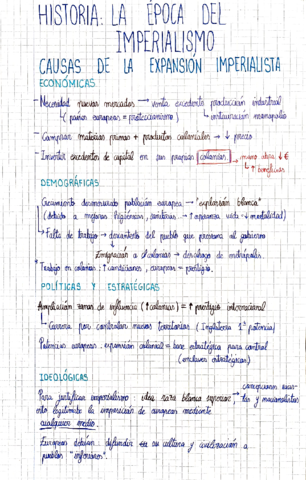 HISTORIA: LA ÉPOCA DEL
IMPERIALISMO
CAUSAS DE LA EXPANSIÓN IMPERIALISTA
ECONÓMICAS
- Necesidad nuevos mercados → venta excedente producción industrial
↳ países europeos = proteccionismo ↳ instauración monopolio
- Comprar materias primas + productos coloniales → ↓ precio
- Invertir excedentes de capital en sus propias colonias → mano obra ↓ €
↳ ↑ beneficios
DEMOGRÁFICAS
Crecimiento desmesurado población europea → "explosión blanca"
(debido a mejoras higiénicas, sanitarias → ↑ esperanza vida ↓ mortalidad)
↳ Falta de trabajo → descontento del pueblo que presiona al gobierno
Emigración a colonias → desahogo de metrópolis.
* Trabajo en colonias: ↑ condiciones, europeos = prestigio.
POLÍTICAS Y ESTRATÉGICAS
Ampliación zonas de influencia (↑ colonias) = ↑ prestigio internacional
↳ Carrera por controlar nuevos territorios (Inglaterra 1ª potencia)
Potencias europeas: expansión colonial = base estratégica para control
(enclaves estratégicos)
IDEOLÓGICAS
Para justificar imperialismo: idea raza blanca superior →
y nacionalistas
esto legitimaba la imposición de europeos mediante
cualquier medio.
Europeos debían difundir su cultura y civilización a
pueblos "inferiores".